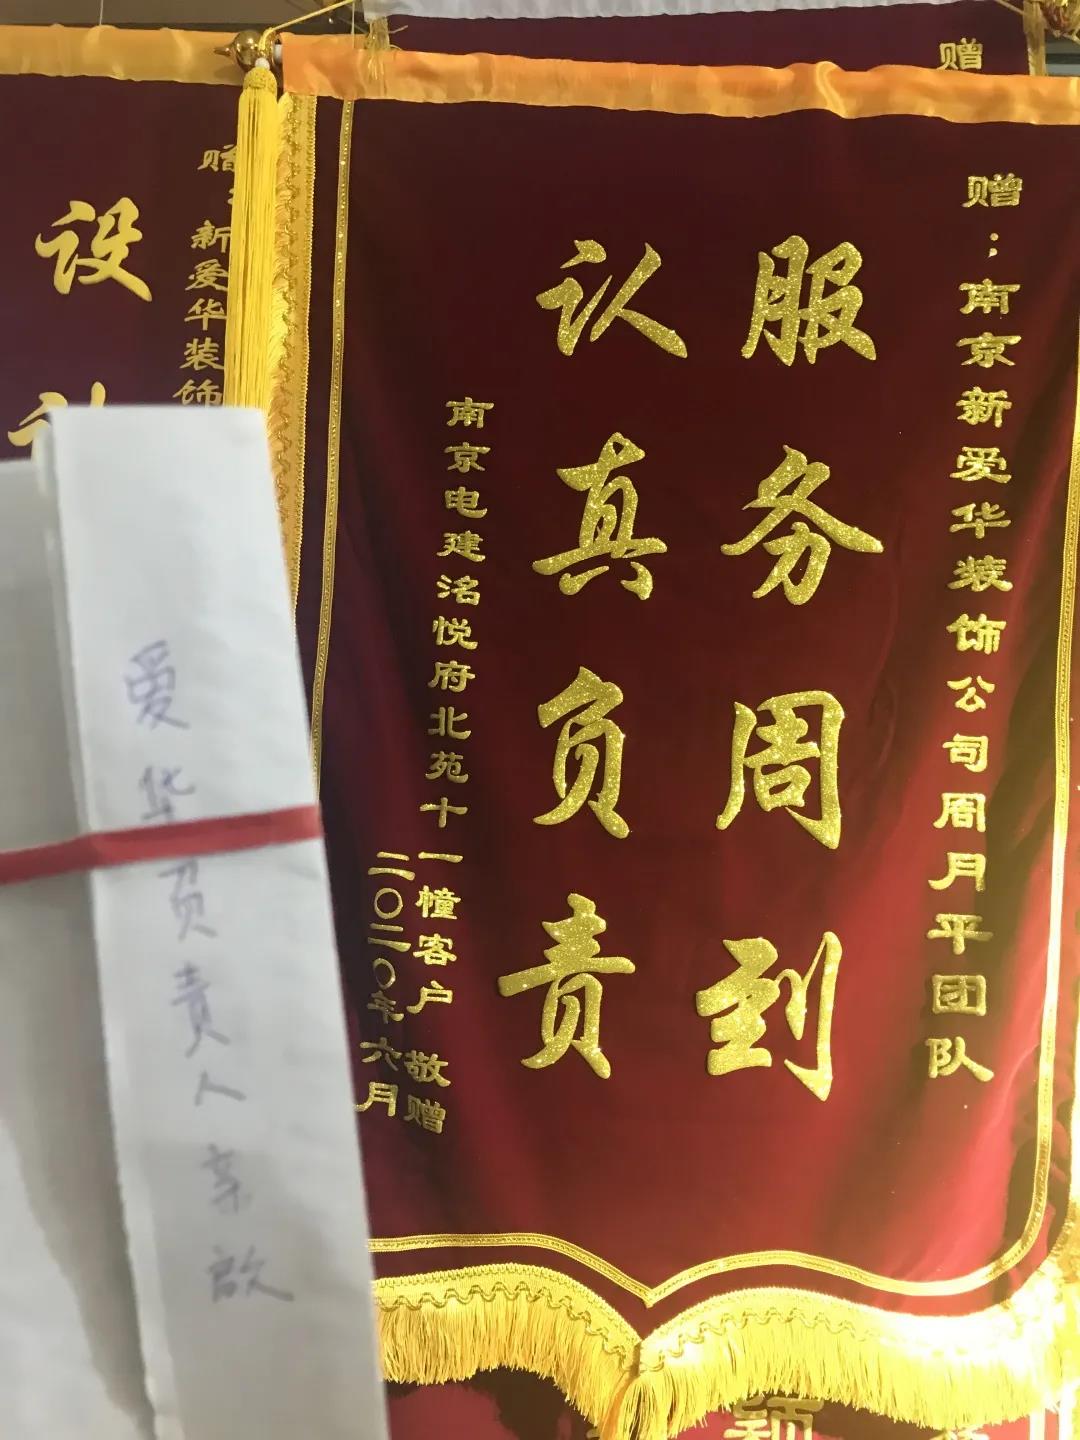 赠：南京新爱华装饰公司周月平团队
服务周到
认真负责
南京电建洺悦府北苑十一幢客户 敬赠
二〇二〇年六月
赠
赠：新爱华装饰
设
爱华负责人亲启
颖